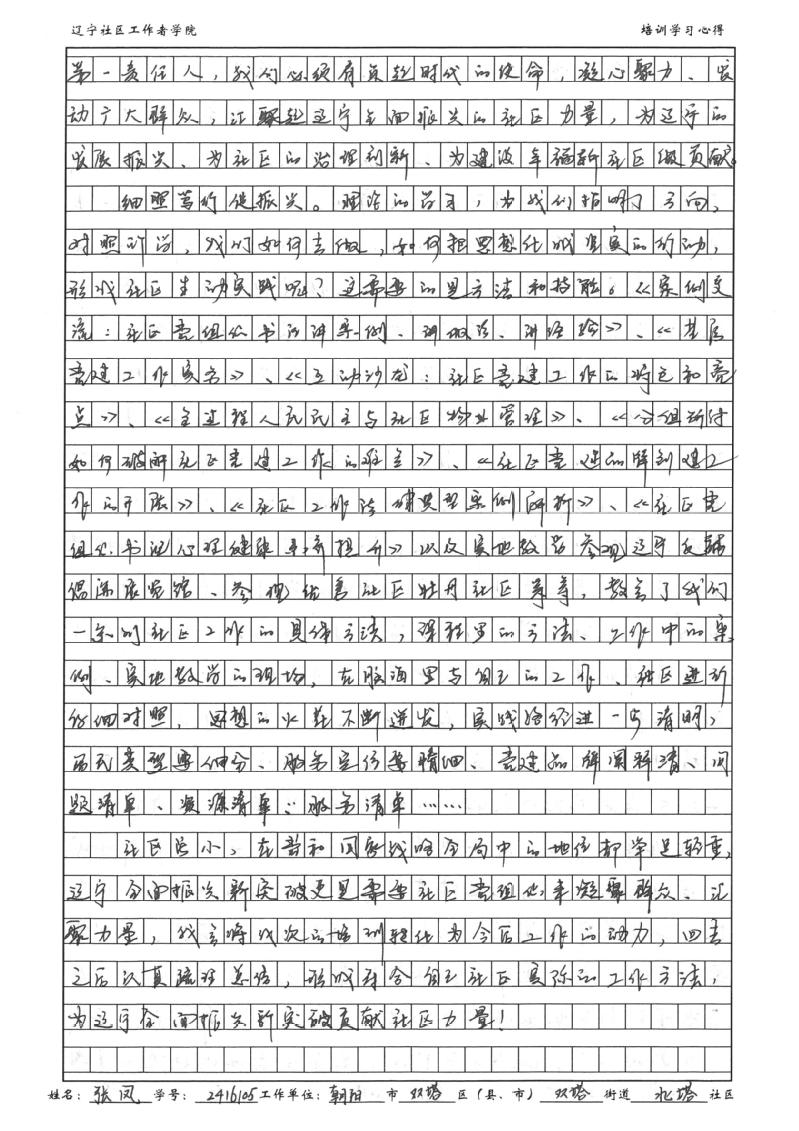 辽宁社区工作者学院 培训学习心得
第一责任人，我们必须肩负起时代的使命，凝心聚力、发
动广大群众，汇聚起辽宁全面振兴的社区力量，为辽宁的
发展振兴、为社区的治理创新、为建设幸福新社区做贡献。
细照笃行促振兴。理论的学习，为我们指明了方向，
对照所学，我们如何去做，如何把思想化成坚实的行动，
形成社区生动实践呢？这需要的是方法和技能。《案例交
流：社区党组织书记讲案例、讲做法、讲经验》、《基层
党建工作实务》、《互动沙龙：社区党建工作的特色和亮
点》、《全过程人民民主与社区物业管理》、《分组研讨
如何破解社区党建工作的难点》、《社区党建品牌创建工
作的开展》、《社区工作法 典型案例解析》、《社区党
组织书记心理健康 》以及实地教学参观辽宁
陈展览馆、参观 社区牡丹社区等等，教会了我们
一系列社区工作的具体方法，课程里的方法、工作中的案
例、实地教学的现场，在脑海里与自己的工作、社区进行
仔细对照，思想的火花不断迸发，实践路径进一步清晰，
居民类型要细分、服务定位要精细、党建品牌阐释清、问
题清单、资源清单、服务清单……
社区虽小，在 和 战略全局中的地位却举足轻重，
辽宁全面振兴新突破更是需要社区党组织来凝聚群众、汇
聚力量，我会将此次的培训转化为今后工作的动力，回去
之后认真梳理总结，形成符合自己社区实际的工作方法，
为辽宁全面振兴新突破贡献社区力量！
姓名：张凤 学号：2416105 工作单位：朝阳 市 双塔 区（县、市） 双塔 街道 北塔 社区